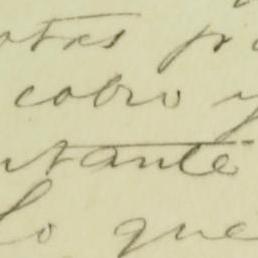 otras
cobro y
ntante
lo que